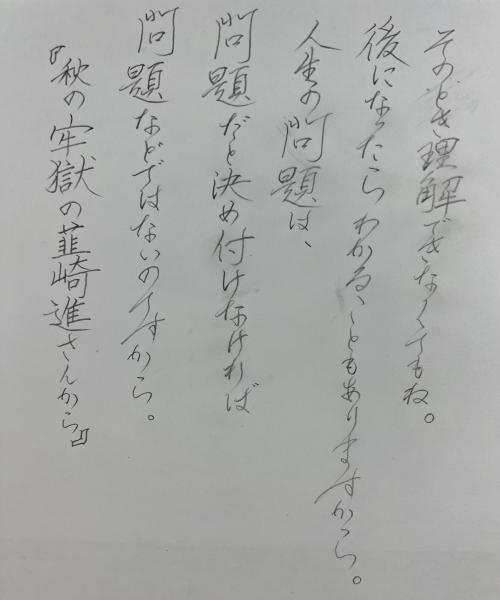 そのとき理解できなくてもね。
後になったらわかることもありますから。
人生の問題は、
問題だと決め付けなければ
問題などではないのですから。
『秋の牢獄の韮崎進さんから』